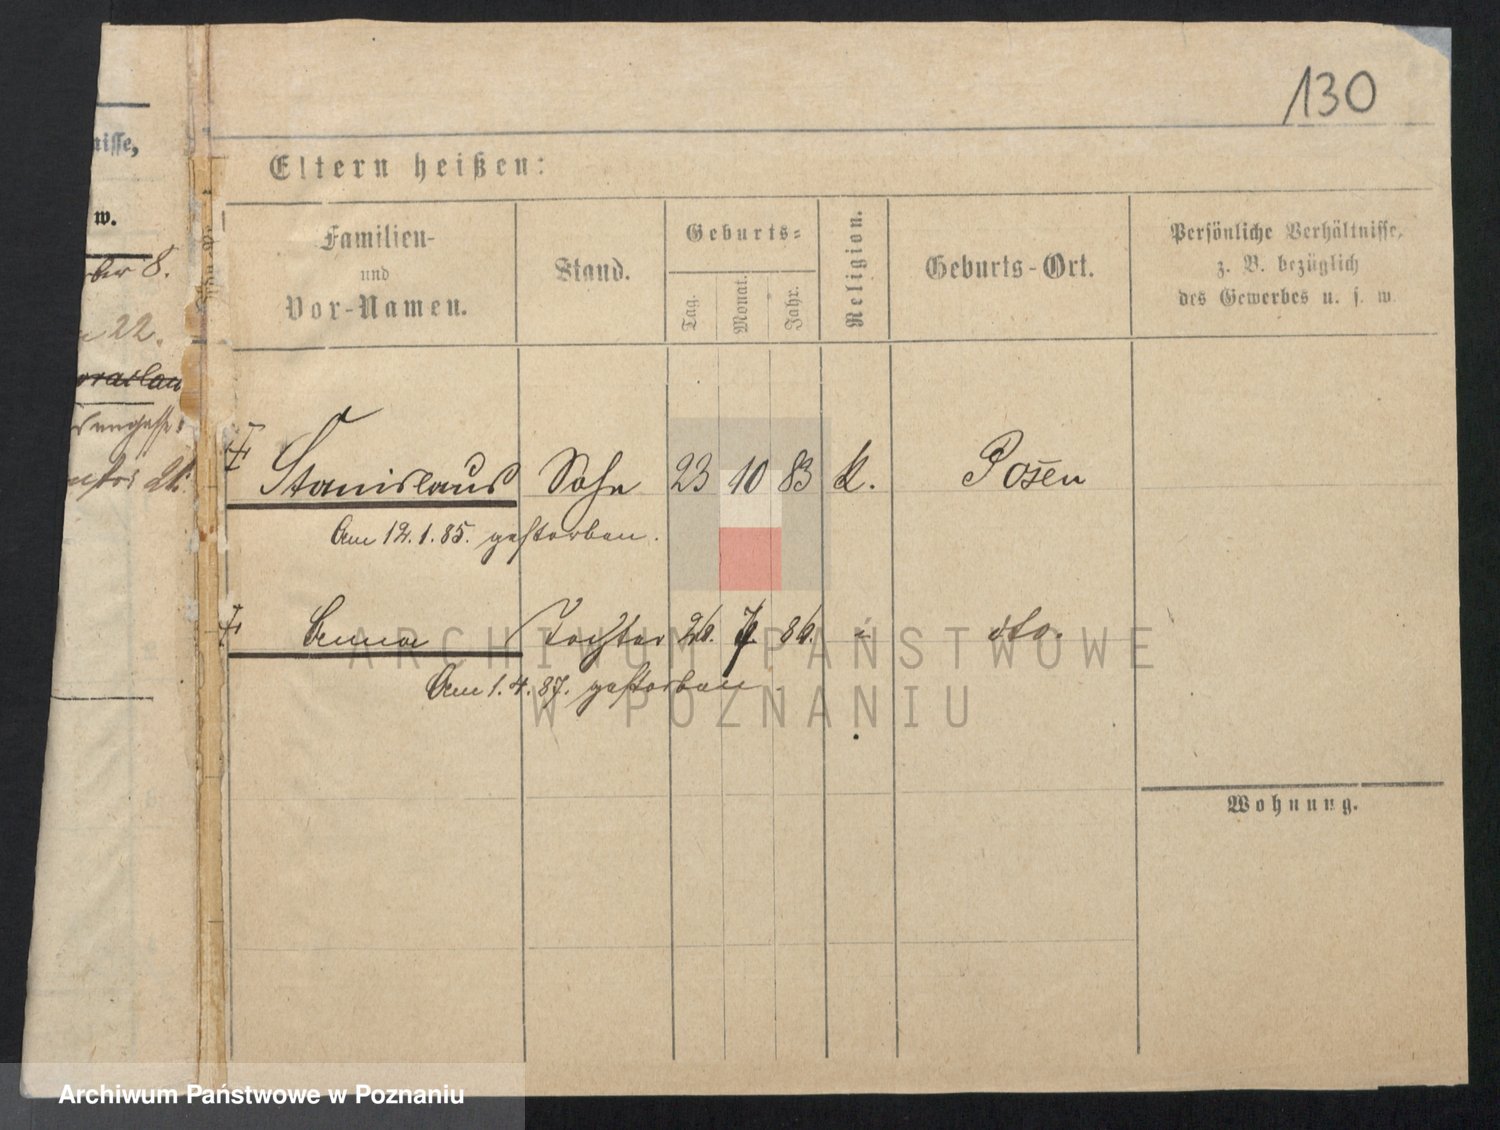 130
Eltern heißen:
Familien-
und
Vor-Namen.
Stand.
Geburts-
Tag.
Monat.
Jahr.
Religion.
Geburts-Ort.
Persönliche Verhältnisse,
z. B. bezüglich
des Gewerbes u. s. w.
nisse,
w.
ber 8.
22.
Stanislaus Sohn 23 10 83 k. Posen
Am 12.1.85. gestorben.
Anna Tochter 26. 7. 86. - dto.
Am 1.4.87. gestorben
Wohnung.
ARCHIWUM PAŃSTWOWE
W POZNANIU
Archiwum Państwowe w Poznaniu